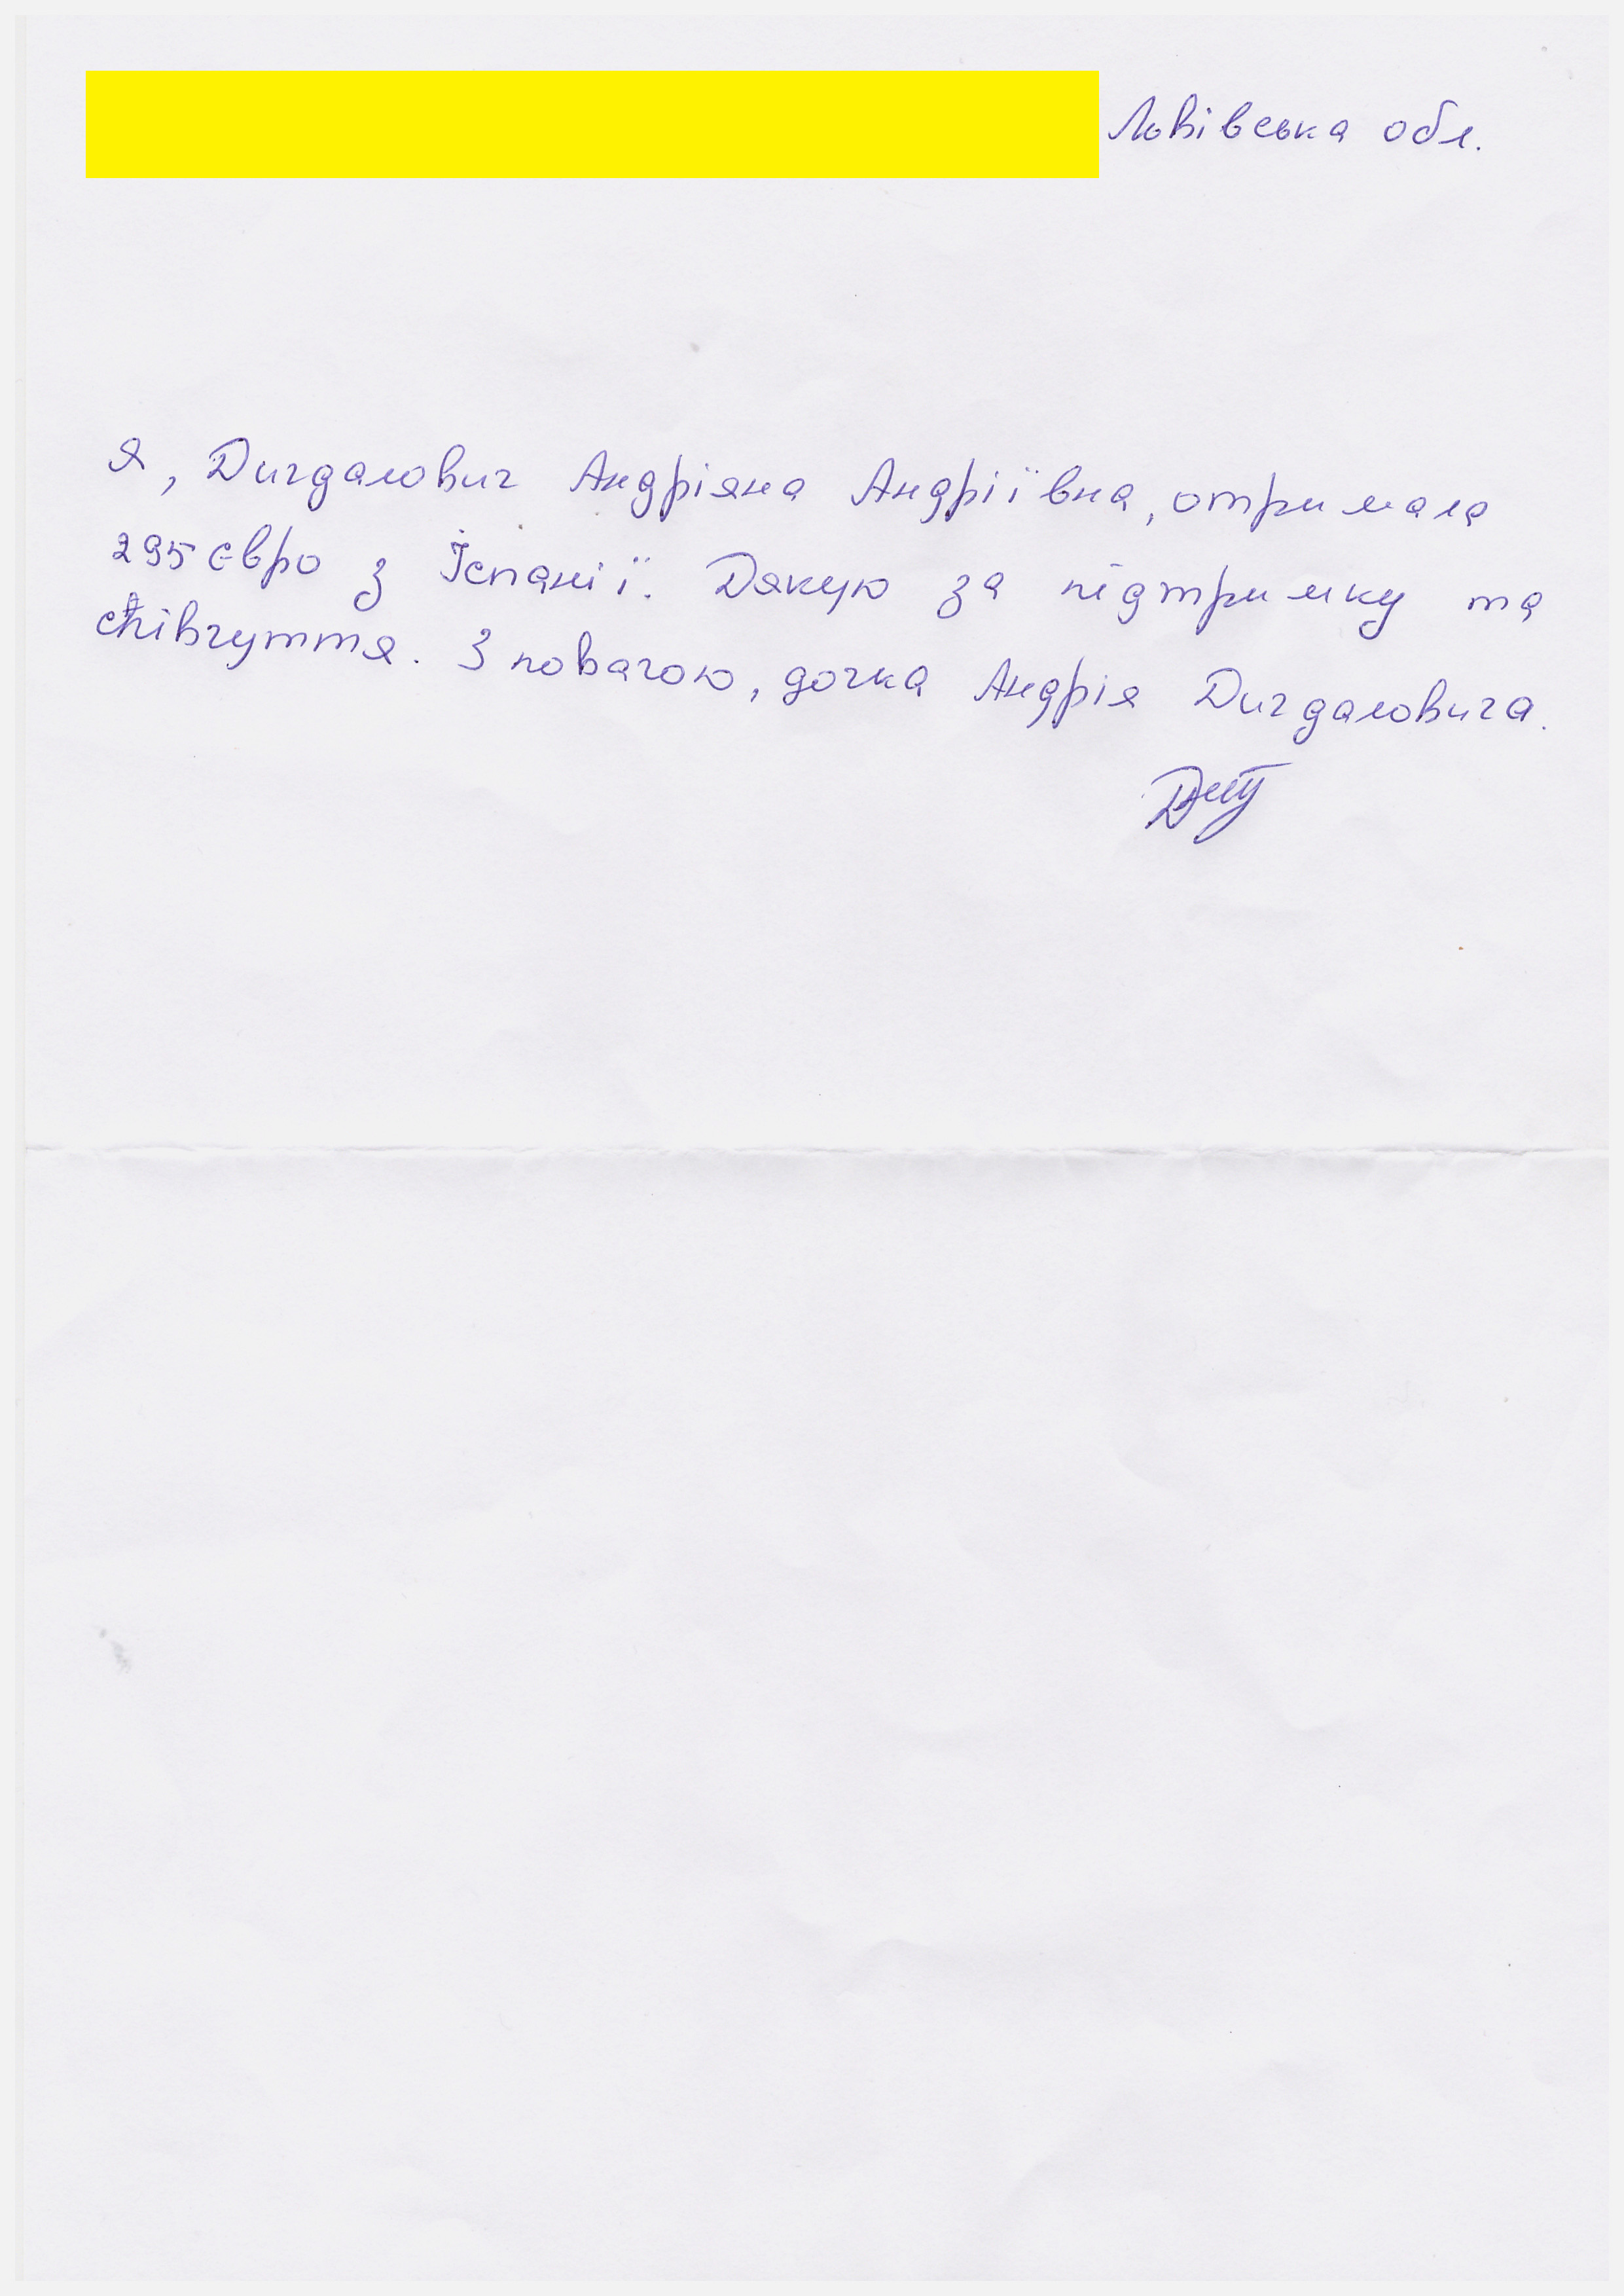 Львівська обл.
Я, Дигдалович Андріяна Андріївна, отримала
295 євро з Іспанії. Дякую за підтримку та
співчуття. З повагою, дочка Андрія Дигдаловича.